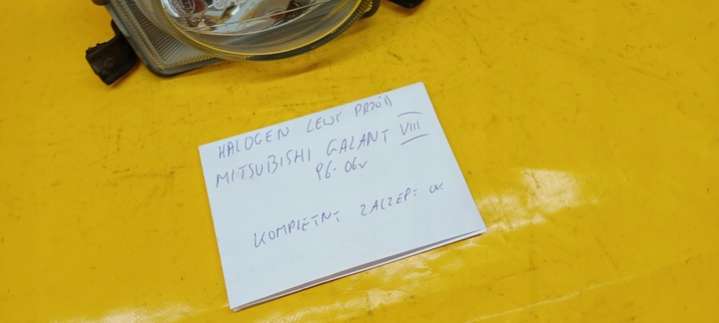 HALOGEN LEWY PRZÓD
MITSUBISHI GALANT VIII
96-06r
KOMPLETNY ZACZEPY OK